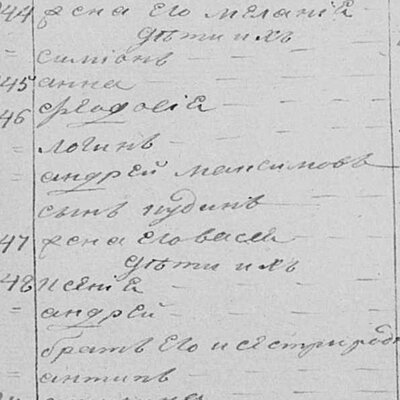 44 жена его меланіѣ
дѣти ихъ
симіонъ
45 анна
46 фѣодосіѣ
логинъ
андрей максимовъ
сынъ иудинъ
47 жена его васѣ
дѣти ихъ
48 ксѣніѣ
андрей
братъ его и сѣстри род
антипъ